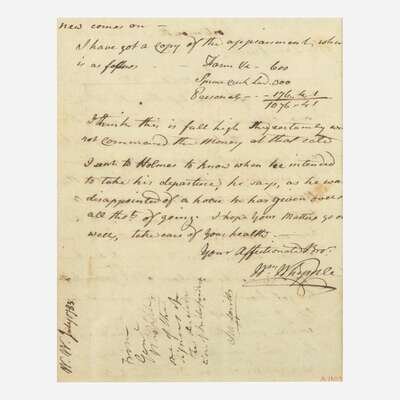 new comes on —
I have got a copy of the appraisement, which
is as follows Farm &c - 600
Spruce Creek Land 300
Personal - - 176.4.1
1076 - 4.1
I think this is full high they certainly will
not command the money at that rate
I sent to Holmes to know when he intended
to take his departure, he says, as he was
disappointed of a horse he has given over
all thots of going. I hope your matters go on
well, take care of your health
Your Affectionate Bror
Wm Whipple
W. W. July 1783
from
Genl
one of the
signers of
the